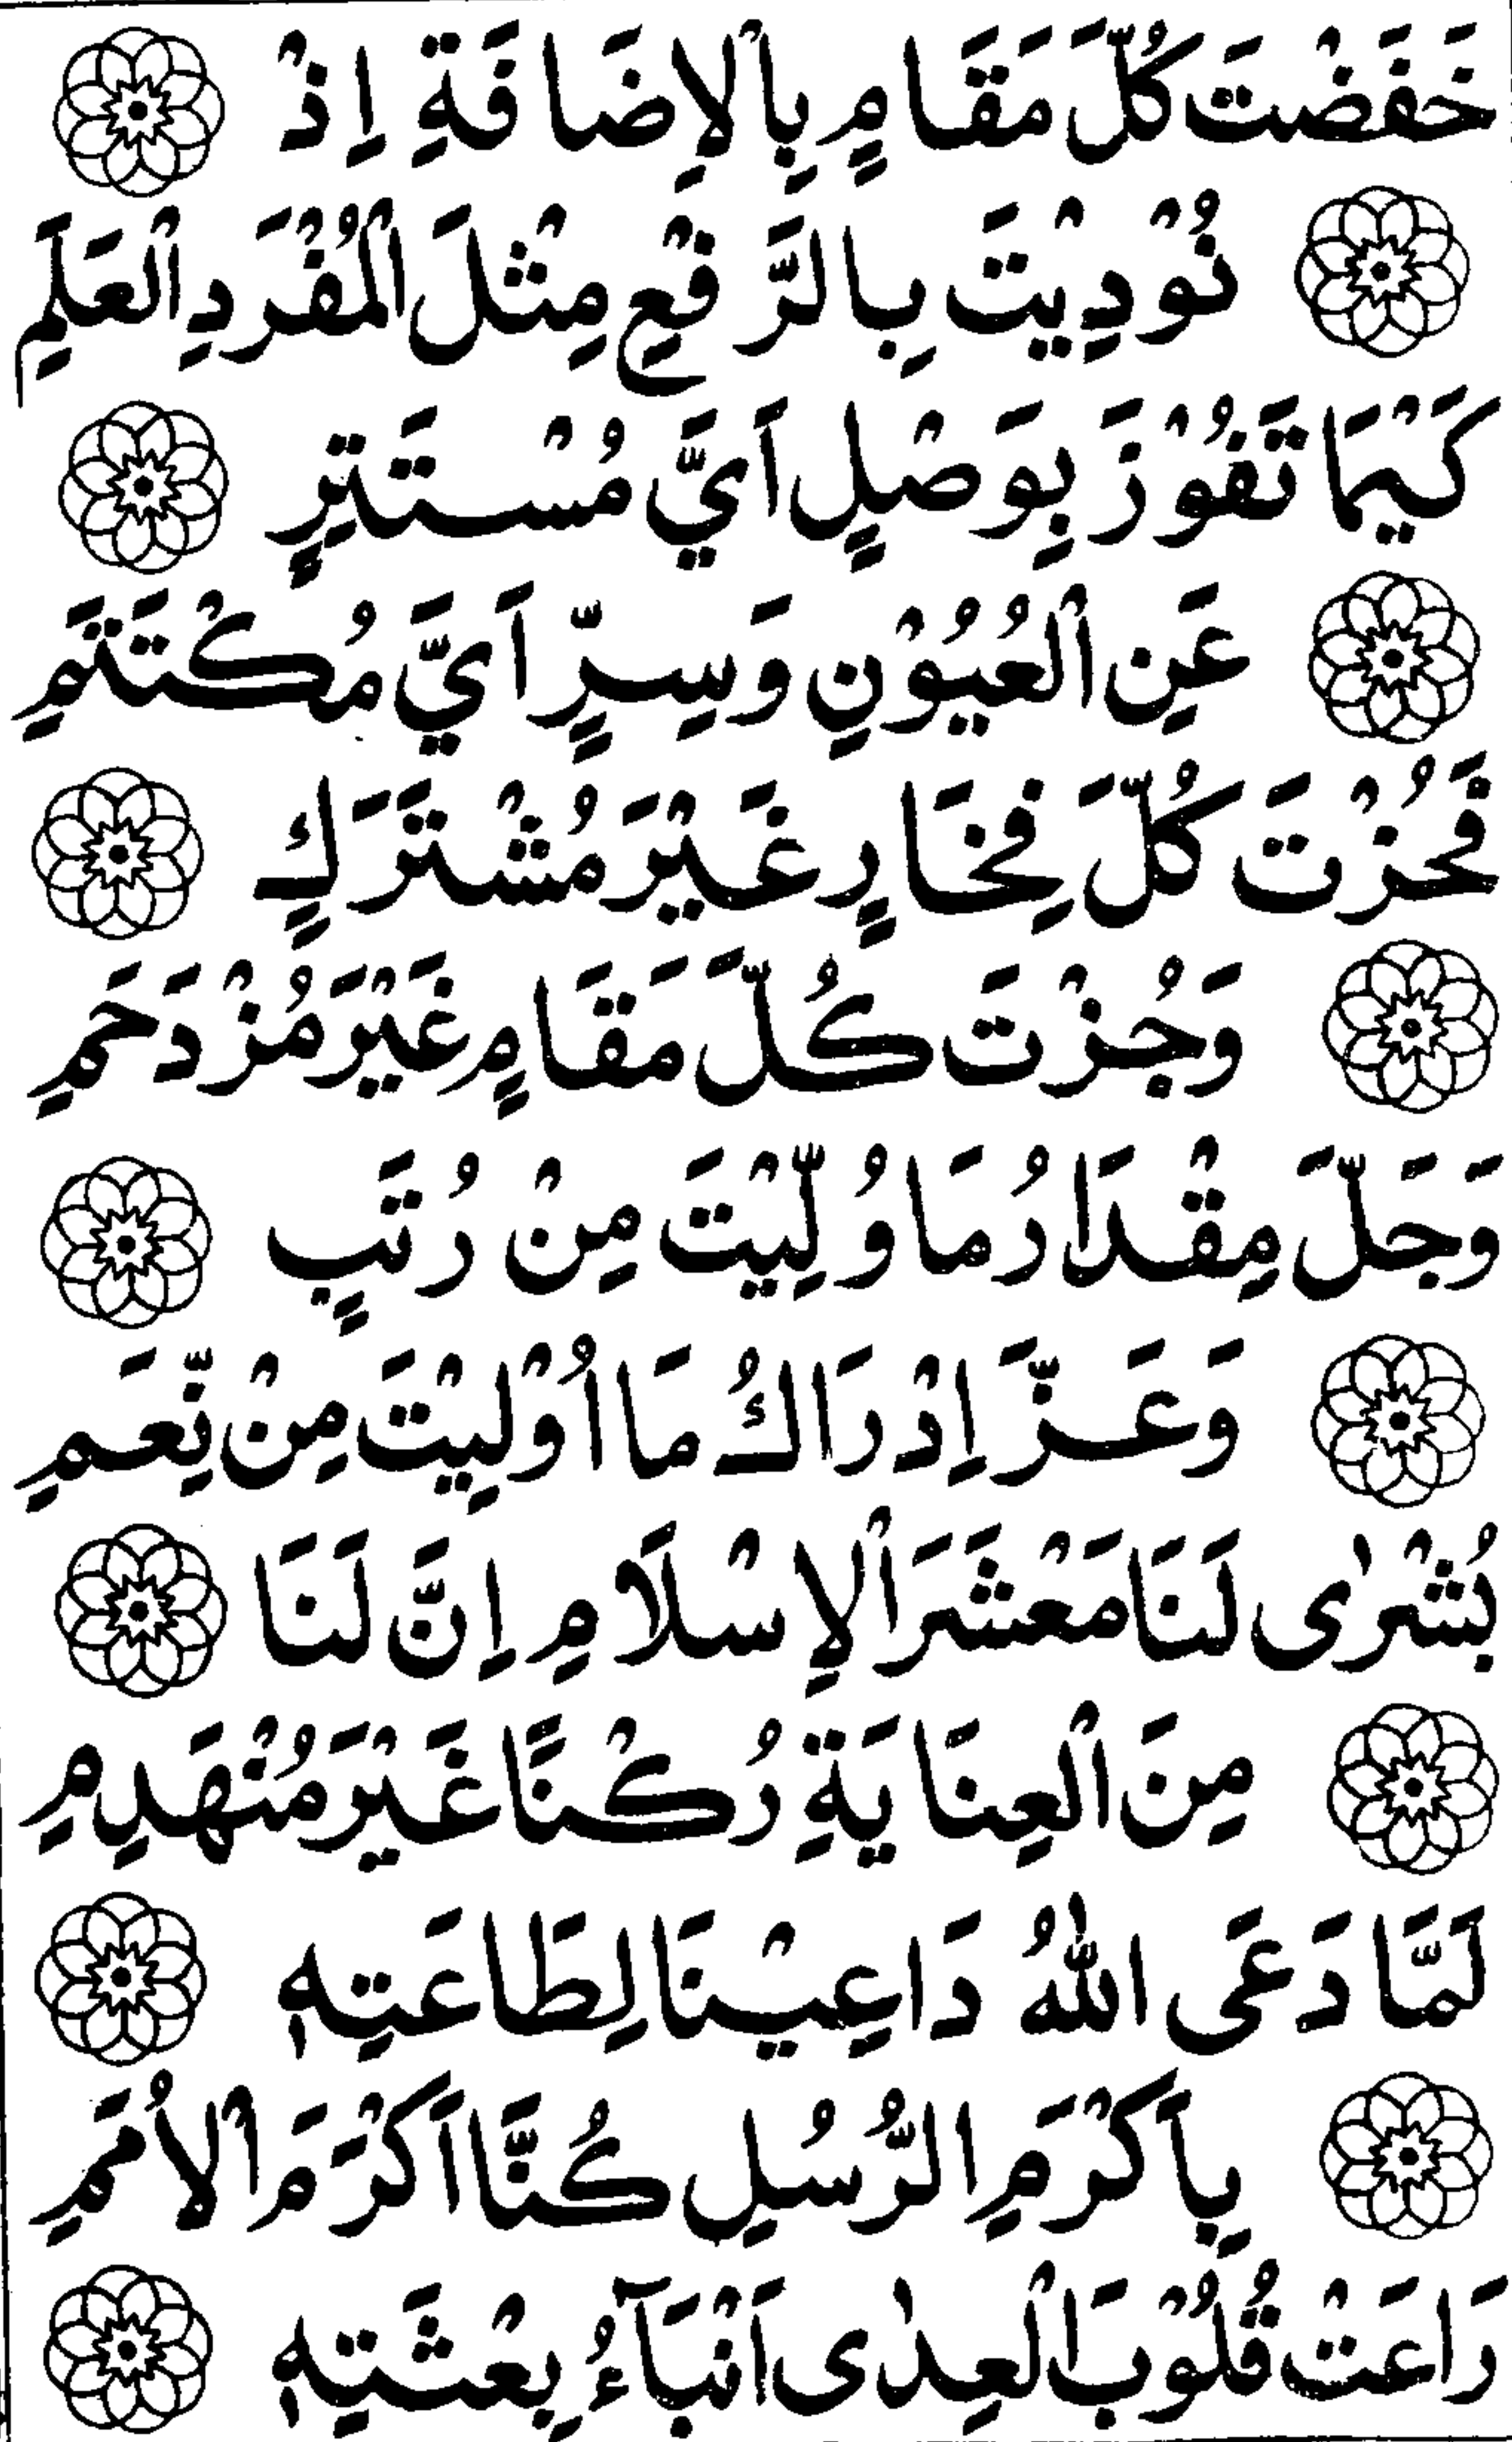 خَفَضْتَ كُلَّ مَقَامٍ بِالْاِضَافَةِ اِذْ
نُوْدِيْتَ بِالرَّفْعِ مِثْلَ الْمُفْرَدِ الْعَلَمِ
كَيْمَا تَفُوْزَ بِوَصْلٍ اَيَّ مُسْتَتِرٍ
عَنِ الْعُيُوْنِ وَسِرٍّ اَيَّ مُكْتَتَمِ
فَحُزْتَ كُلَّ فِخَارٍ غَيْرَ مُشْتَرَكٍ
وَجُزْتَ كُلَّ مَقَامٍ غَيْرَ مُزْدَحَمِ
وَجَلَّ مِقْدَارُ مَا وُلِّيْتَ مِنْ رُتَبٍ
وَعَزَّ اِدْرَاكُ مَا اُوْلِيْتَ مِنْ نِّعَمِ
بُشْرٰى لَنَا مَعْشَرَ الْاِسْلَامِ اِنَّ لَنَا
مِنَ الْعِنَايَةِ رُكْنًا غَيْرَ مُنْهَدِمِ
لَمَّا دَعَى اللّٰهُ دَاعِيْنَا لِطَاعَتِهٖ
بِاَكْرَمِ الرُّسُلِ كُنَّا اَكْرَمَ الْاُمَمِ
رَاعَتْ قُلُوْبَ الْعِدٰى اَنْبَآءُ بِعْثَتِهٖ